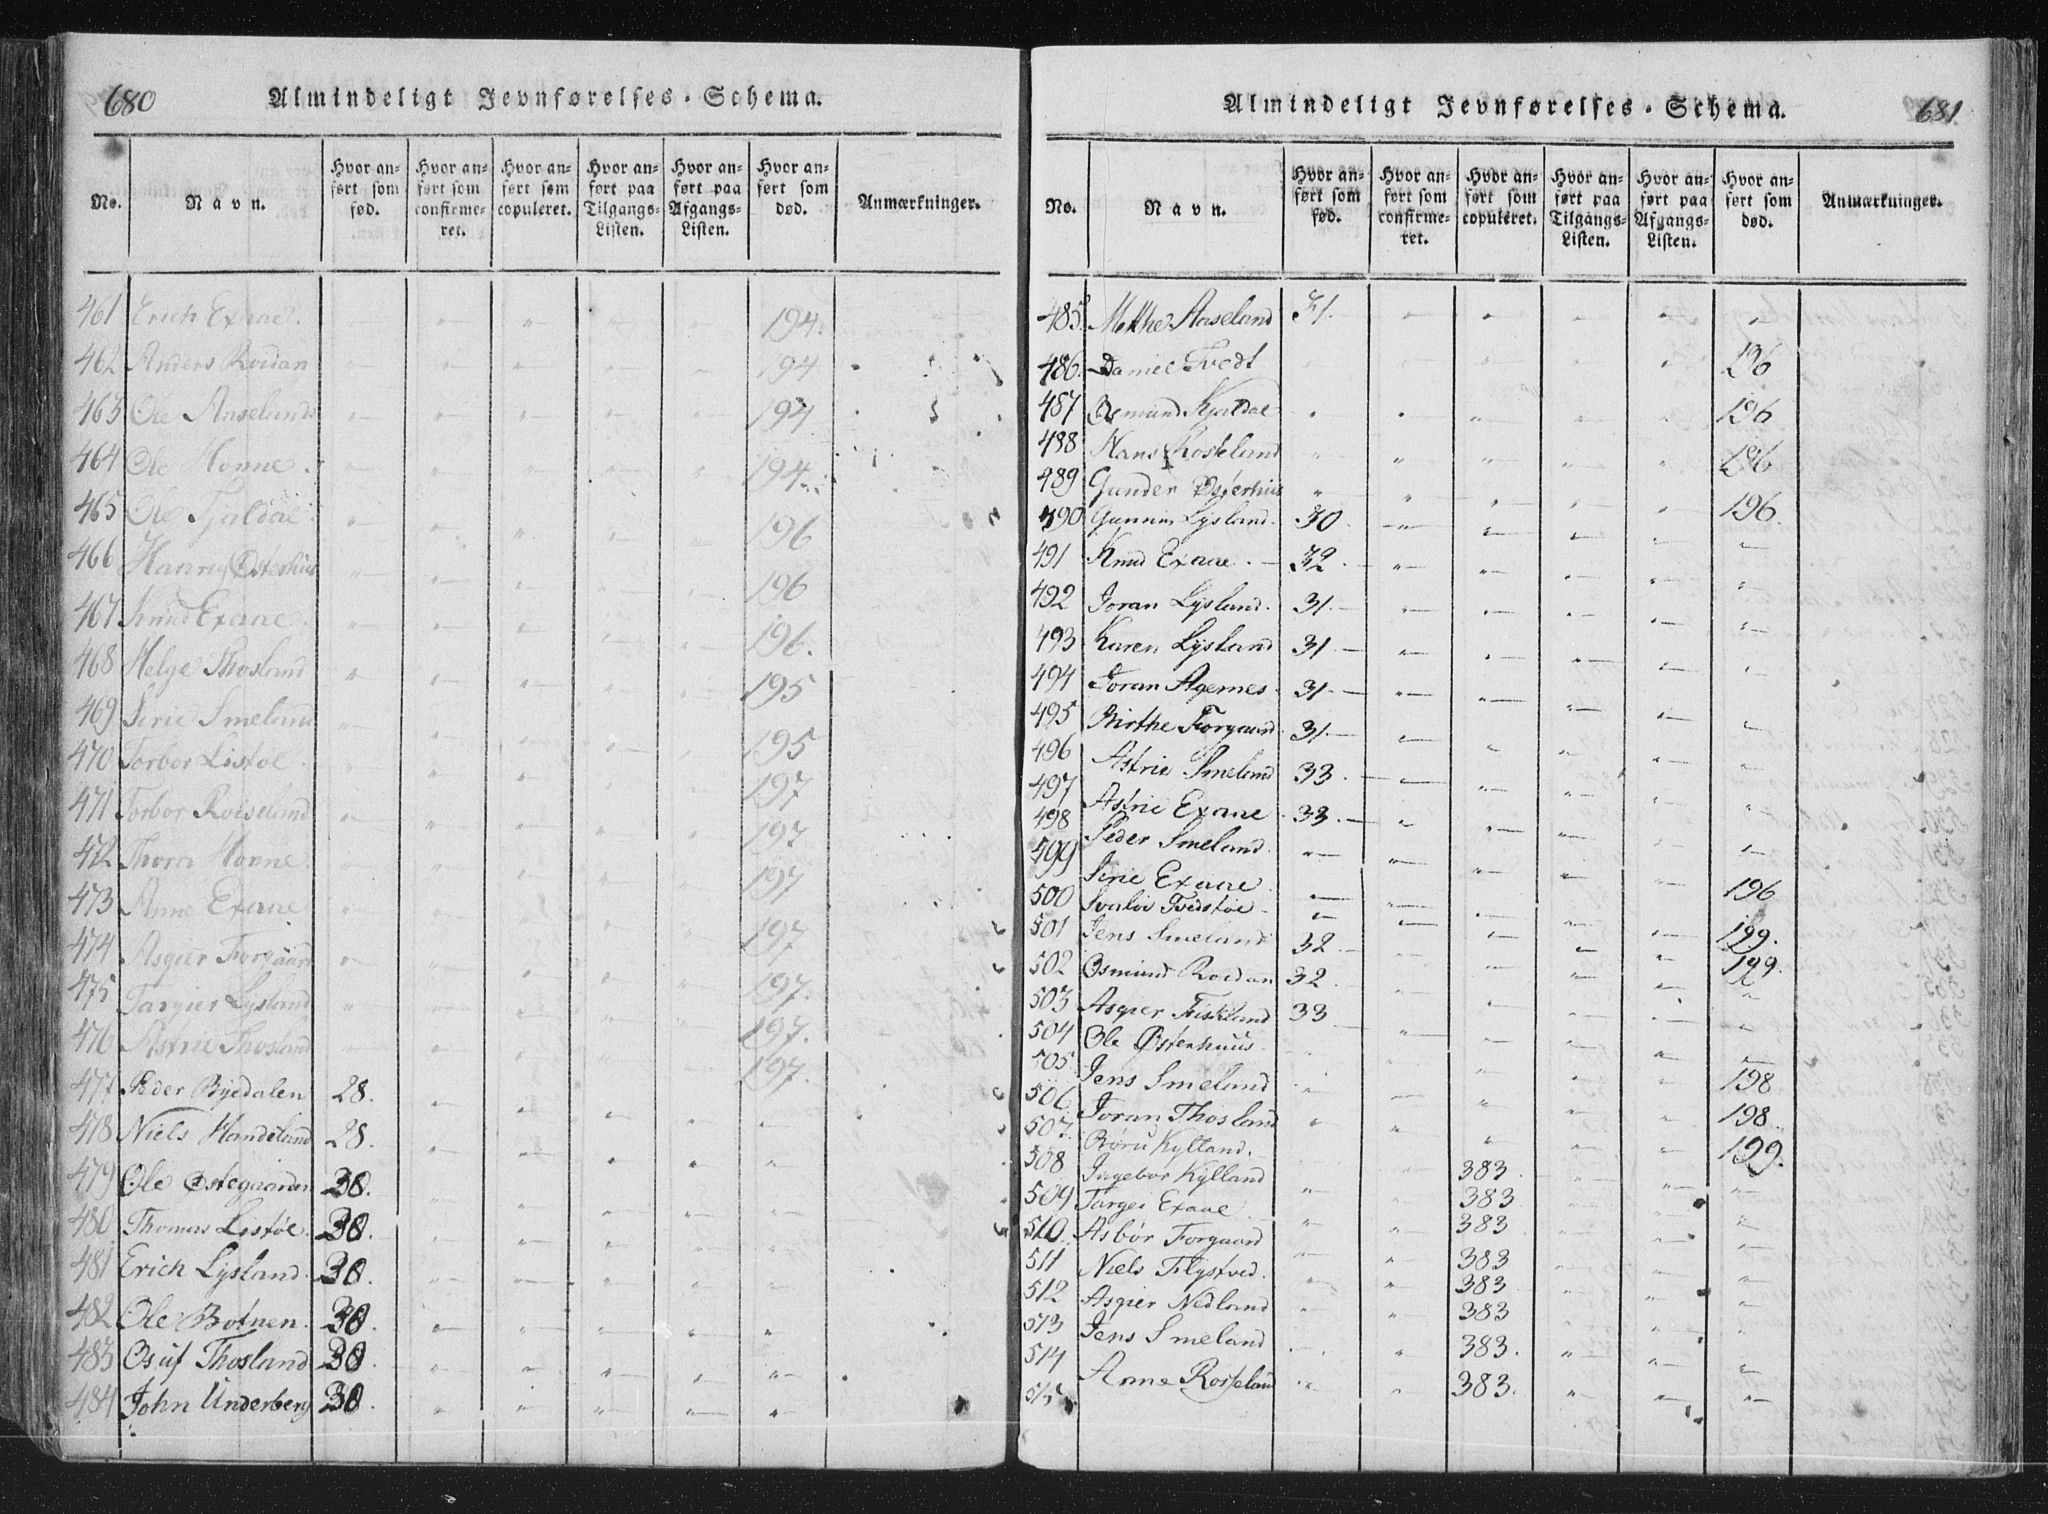 680
Almindeligt Jevnførelses-Schema.
No.
Navn.
Hvor anført som fød.
Hvor anført som confirmeret.
Hvor anført som copuleret.
Hvor anført paa Tilgangs-Listen.
Hvor anført paa Afgangs-Listen.
Hvor anført som død.
Anmærkninger.
461 Erich Exaae. 194.
462 Anders Roidan 194
463 Ole Aaseland 194
464 Ole Honne. 194
465 Ole Fjaldal 196
466 Østerhuus 196
467 Knud Exaae 196.
468 Helge Thosland 195
469 Sirie Smeland 195
470 Torbor Listøl 197
471 Torbor Roiseland 197
472 Thora Honne 197
473 Anne Exaae 197
474 Asgier Forgaard 197.
475 Targier Lysland 197.
476 Astrie Thosland 197.
477 Peder Byedalen 28.
478 Niels Handeland 28.
479 Ole Østegaarden 30.
480 Thomas Listøl. 30.
481 Erich Lysland 30.
482 Ole Botnen. 30.
483 Osuf Thosland 30
484 John Underberg 30.
Almindeligt Jevnførelses-Schema.
681
No.
Navn.
Hvor anført som fød.
Hvor anført som confirmeret.
Hvor anført som copuleret.
Hvor anført paa Tilgangs-Listen.
Hvor anført paa Afgangs-Listen.
Hvor anført som død.
Anmærkninger.
485 Methe Aaseland 31.
486. Daniel Tvedt 196
487 Osmund Kjaldal 196
488 Hans Roseland 196
489 Gunder Østerhus 196.
490 Lysland. 30.
491 Knud Exaae. 32.
492 Joran Lysland. 31.
493 Karen Lysland 31.
494 Joran Agernes. 31.
495 Birthe Forgaard 31.
496 Astrie Smeland 33.
497 Astrie Exaae 33.
498 Peder Smeland.
499 Sirie Exaae 196
500 Tvedtøl. 199.
501 Jens Smeland 32. 199.
502 Osmund Roidan 32.
503 Asgier Fiskland 33
504 Ole Østenhuus
505. Jens Smeland 198
506 Joran Thosland 198
507. Kylland. 199.
508 Ingebor Kylland 383.
509 Targei Exaae 383
510 Asbør Forgaard 383
511 Niels Flystved. 383
512 Asgier Nedland 383
513 Jens Smeland 383
514 Anne Rosseland 383.
515 383.